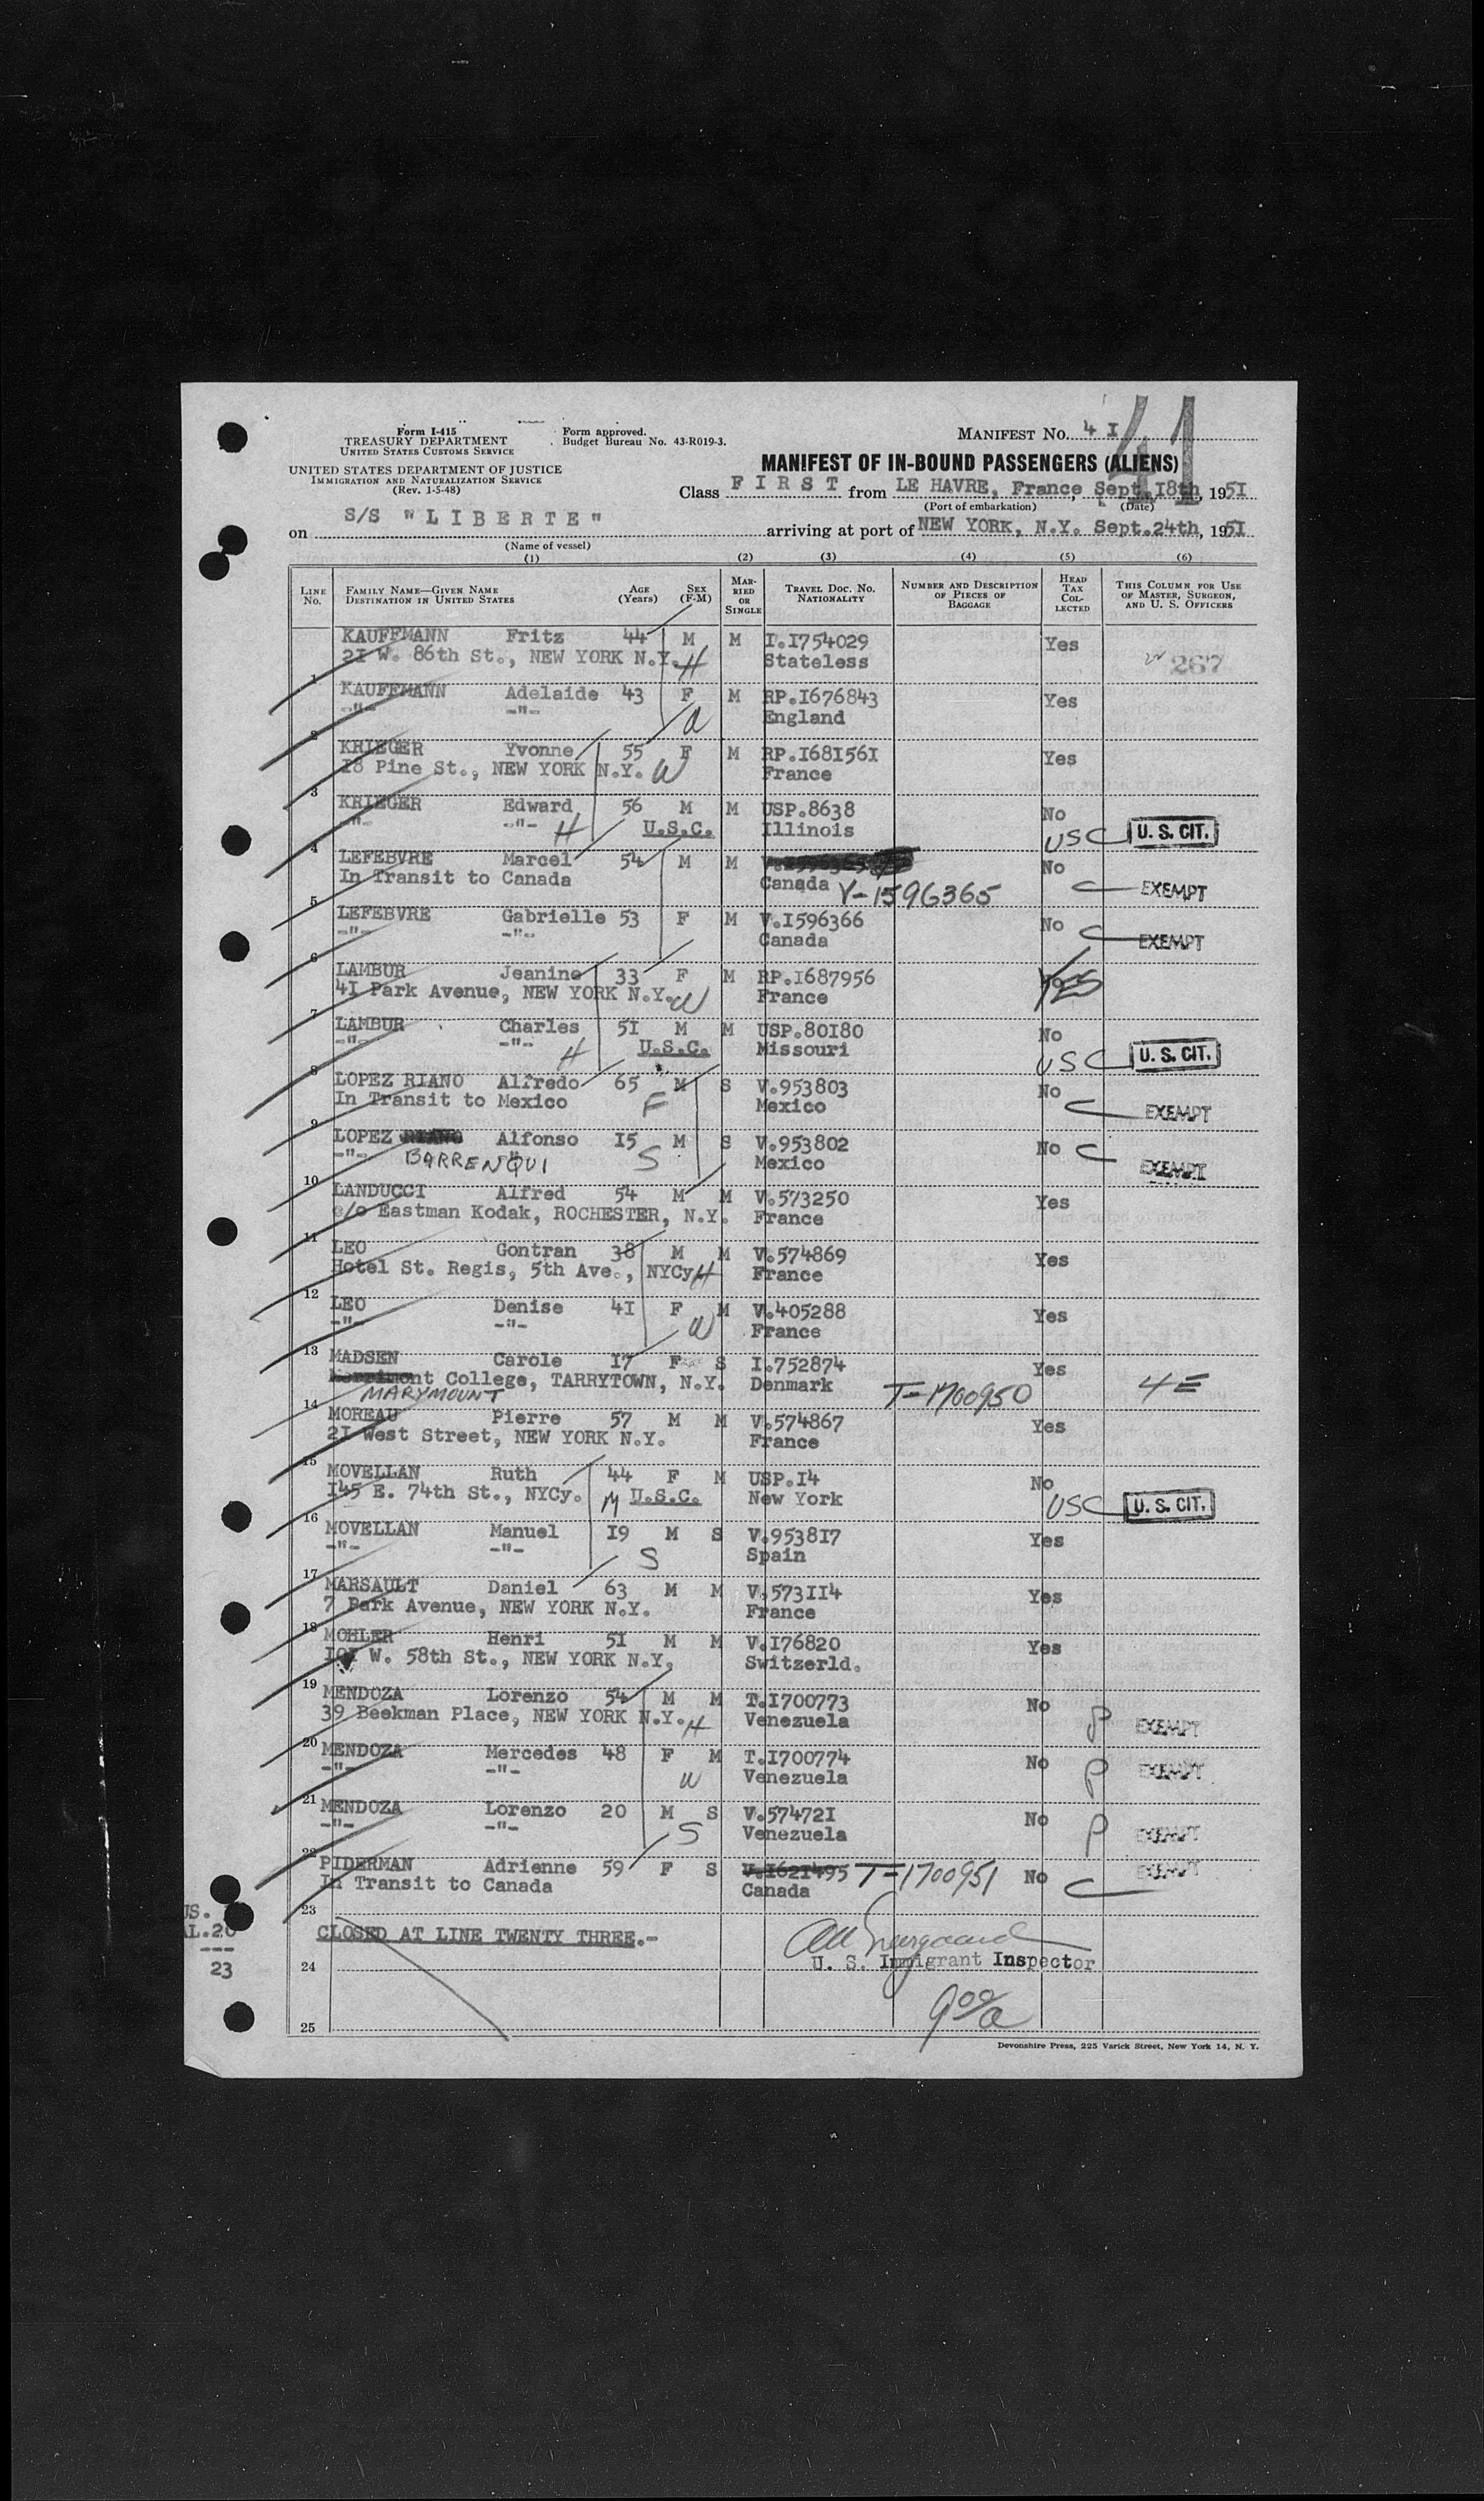 Form I-415
TREASURY DEPARTMENT
UNITED STATES CUSTOMS SERVICE
Form approved.
Budget Bureau No. 43-R019-3.
MANIFEST No. 4 I
41
UNITED STATES DEPARTMENT OF JUSTICE
IMMIGRATION AND NATURALIZATION SERVICE
(Rev. 1-5-48)
MANIFEST OF IN-BOUND PASSENGERS (ALIENS)
Class F I R S T from LE HAVRE, France, Sept.I8th, 1951
(Port of embarkation) (Date)
on S/S "L I B E R T E" arriving at port of NEW YORK, N.Y. Sept.24th, 1951
(Name of vessel)
(1) (2) (3) (4) (5) (6)
LINE No. FAMILY NAME—GIVEN NAME DESTINATION IN UNITED STATES AGE (Years) SEX (F-M) MARRIED OR SINGLE TRAVEL DOC. No. NATIONALITY NUMBER AND DESCRIPTION OF PIECES OF BAGGAGE HEAD TAX COLLECTED THIS COLUMN FOR USE OF MASTER, SURGEON, AND U. S. OFFICERS
KAUFFMANN Fritz 44 M M I.I754029 Yes
1 2I W. 86th St., NEW YORK N.Y. H Stateless 267
KAUFFMANN Adelaide 43 F M RP.I676843 Yes
2 -"- -"- W England
KRIEGER Yvonne 55 F M RP.I68I56I Yes
3 I8 Pine St., NEW YORK N.Y. W France
KRIEGER Edward 56 M M USP.8638 No
4 -"- -"- H U.S.C. Illinois USC U. S. CIT.
LEFEBVRE Marcel 54 M M No
5 In Transit to Canada Canada V-1596365 C EXEMPT
LEFEBVRE Gabrielle 53 F M V.I596366 No
6 -"- -"- Canada C EXEMPT
LAMBUR Jeanine 33 F M RP.I687956 YES
7 4I Park Avenue, NEW YORK N.Y. W France
LAMBUR Charles 5I M M USP.80I80 No
8 -"- -"- H U.S.C. Missouri USC U. S. CIT.
LOPEZ RIANO Alfredo 65 M S V.953803 No
9 In Transit to Mexico F Mexico C EXEMPT
LOPEZ RIANO Alfonso I5 M S V.953802 No
10 -"- BARRENQUI -"- S Mexico C EXEMPT
LANDUCCI Alfred 54 M M V.573250 Yes
11 c/o Eastman Kodak, ROCHESTER, N.Y. France
LEO Gontran 38 M M V.574869 Yes
12 Hotel St. Regis, 5th Ave., NYCy H France
LEO Denise 4I F M V.405288 Yes
13 -"- -"- W France
MADSEN Carole I7 F S I.752874 Yes
14 Merrimont College, TARRYTOWN, N.Y. Denmark T-1700950 4E
MARYMOUNT
MOREAU Pierre 57 M M V.574867 Yes
15 2I West Street, NEW YORK N.Y. France
MOVELLAN Ruth 44 F M USP.I4 No
16 I45 E. 74th St., NYCy. M U.S.C. New York USC U. S. CIT.
MOVELLAN Manuel I9 M S V.9538I7 Yes
17 -"- -"- S Spain
MARSAULT Daniel 63 M M V.573II4 Yes
18 7 Park Avenue, NEW YORK N.Y. France
MOHLER Henri 5I M M V.I76820 Yes
19 W. 58th St., NEW YORK N.Y. Switzerld.
MENDOZA Lorenzo 54 M M T.I700773 No
20 39 Beekman Place, NEW YORK N.Y. H Venezuela P EXEMPT
MENDOZA Mercedes 48 F M T.I700774 No
21 -"- -"- W Venezuela P EXEMPT
MENDOZA Lorenzo 20 M S V.57472I No
22 -"- -"- S Venezuela P EXEMPT
PIDERMAN Adrienne 59 F S V.I62I495 T-1700951 No EXEMPT
23 In Transit to Canada Canada C
US.
AL.20
---
23
CLOSED AT LINE TWENTY THREE.-
24 U. S. Immigrant Inspector
900/a
25
Devonshire Press, 225 Varick Street, New York 14, N. Y.